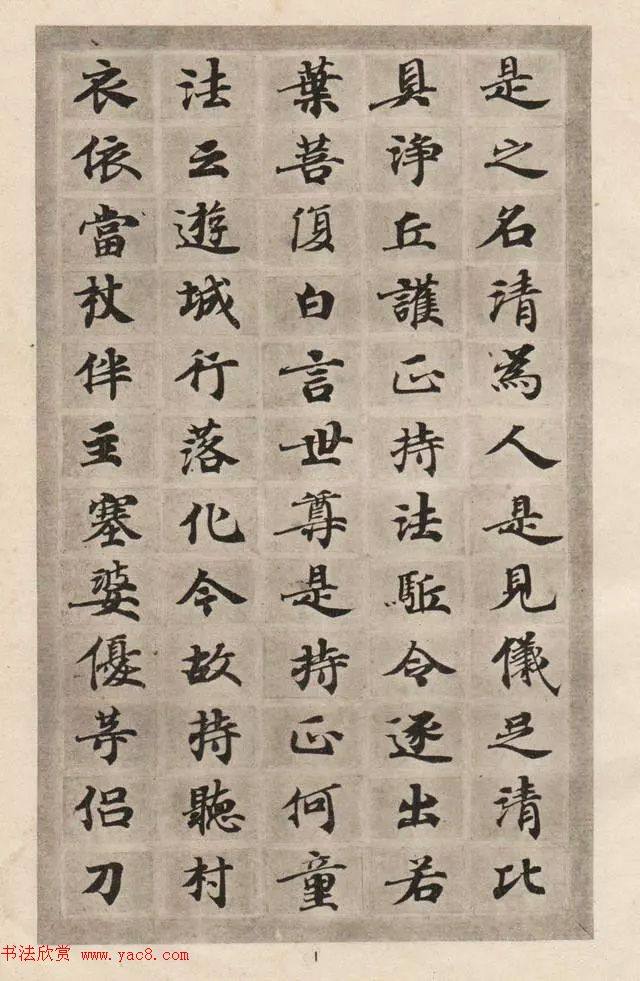 是之名清為人是見儀足清比
具諍丘護正持法駈令逐出若
葉菩復白言世尊是持正何童
法云遊城行落化令故持聽村
衣依當杖伴主塞婆優等侶刀
1
书法欣赏 www.yac8.com